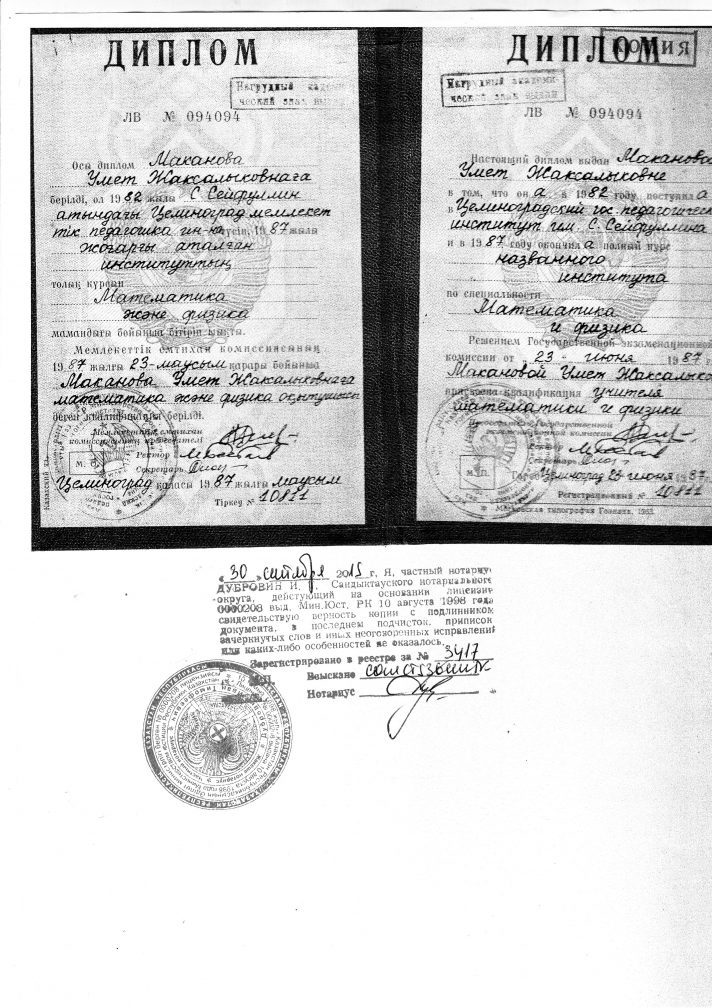 ДИПЛОМ
Нагрудный академи
ческий знак выдан
ЛВ № 094094
Осы диплом Маканова
Умет Жаксалыковнаға
берілді, ол 1982 жылы С. Сейфуллин
атындағы Целиноград мемлекет
тік педагогика ин-на түсіп, 1987 жылы
жоғарғы аталған
институттың
толық курсын
Математика
және физика
мамандығы бойынша бітіріп шықты.
Мемлекеттік емтихан комиссиясының
1987 жылғы 23-маусым қарары бойынша
Маканова Умет Жаксалыковнаға
математика және физика оқытушысы
деген квалификация берілді.
Мемлекеттік емтихан
комиссиясының председателі
Ректор
Секретарь
М.
Целиноград қаласы 1987 жылғы маусым
Тіркеу № 10811
ДИПЛОМ
КОПИЯ
Нагрудный академи
ческий знак выдан
ЛВ № 094094
Настоящий диплом выдан Маканова
Умет Жаксалыковне
в том, что она в 1982 году поступила
в Целиноградский гос. педагогическ
институт им. С. Сейфуллина
и в 1987 году окончила полный курс
названного
института
по специальности
Математика
и физика
Решением Государственной экзаменационной
комиссии от 23 - июня 1987 г.
Макановой Умет Жаксалыко
присвоена квалификация учителя
математики и физики
Председатель Государственной
экзаменационной комиссии
Ректор
Секретарь
М.П.
Город Целиноград 23 июня 1987 г.
Регистрационный № 10811
Московская типография Гознака, 1983.
«30» сентября 2015 г. Я, частный нотариус
ДУБРОВИН И. Сандыктауского нотариального
округа, действующий на основании лицензии
0000208 выд. Мин.Юст. РК 10 августа 1998 года
свидетельствую верность копии с подлинником
документа, в последнем подчисток, приписок
зачеркнутых слов и иных неоговоренных исправлений
или каких-либо особенностей не оказалось.
Зарегистрировано в реестре за № 3417
М.П. Взыскано
Нотариус